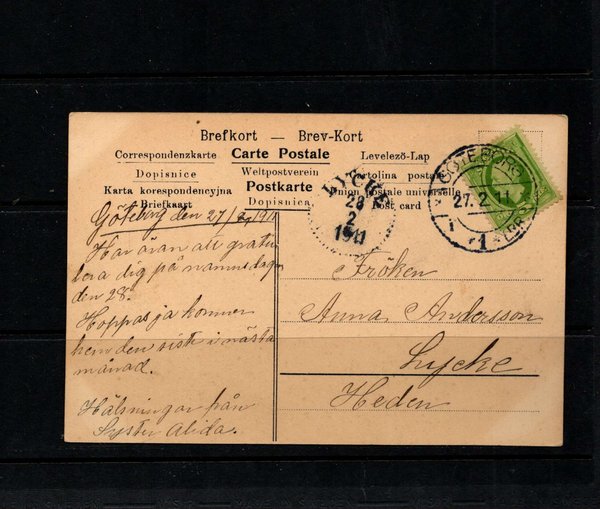 Brefkort — Brev-Kort
Correspondenzkarte Carte Postale Levelező-Lap
Dopisnice Weltpostverein Cartolina postale
Karta korespondencyjna Postkarte Union postale universelle
Briefkaart Dopisnica Post card
LYCKE
28
2
1911
GÖTEBORG
27.2.11
1
Göteborg den 27/2, 191
Har äran att gratu
lera dig på namnsdagen
den 28.
Hoppas ja kommer
hem den sist i nästa
månad.
Hälsningar från
Syster Alida.
Fröken
Anna Andersson
Lycke
Heden